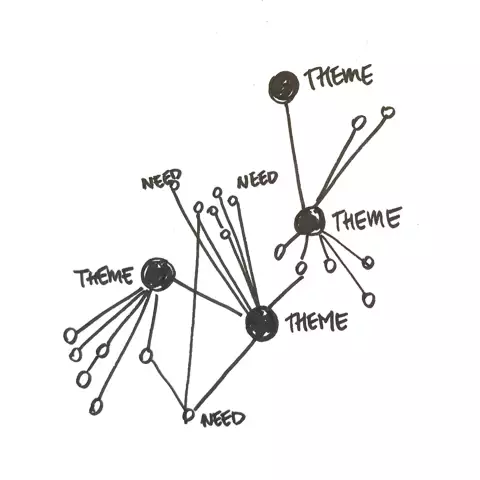 THEME
NEED
NEED
THEME
THEME
THEME
NEED